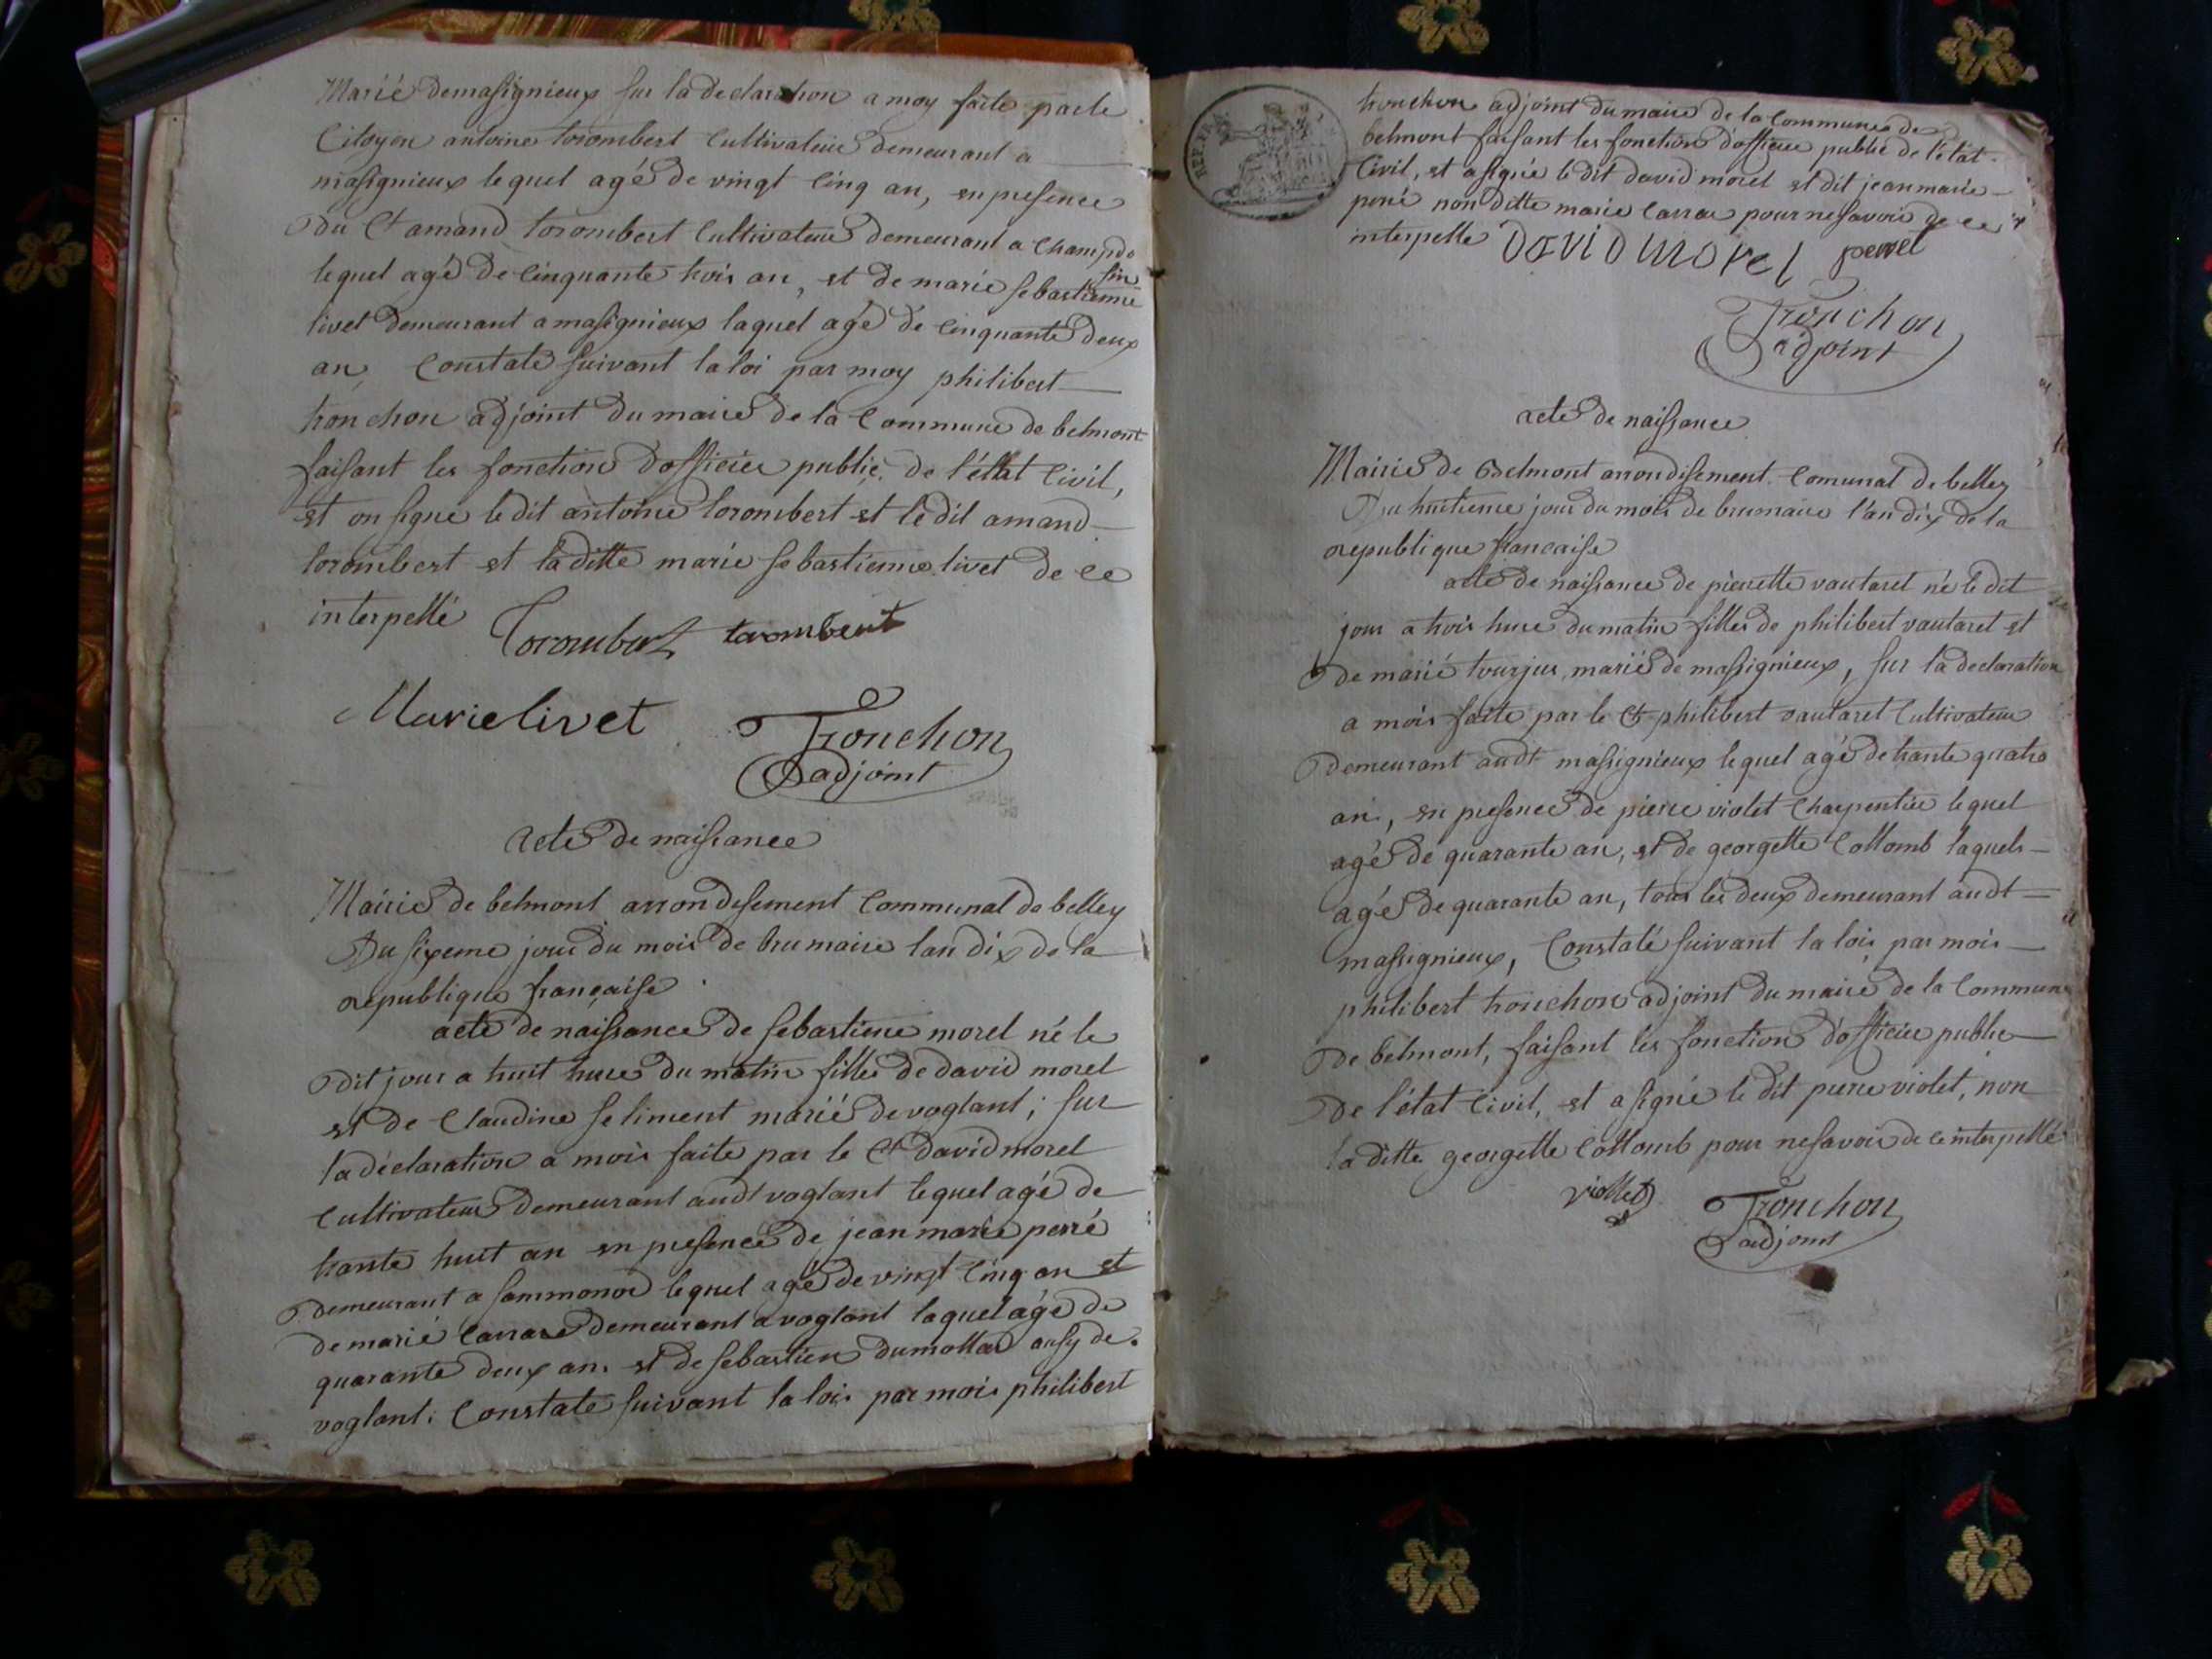 Marié demasignieux sur la declaration a moy faite par le
Citoyen antoine torombert Cultivateur demeurant a
masignieux lequel agé de vingt cinq an, en presence
du Ct amand torombert Cultivateur demeurant a champdo
sin
lequel agé de cinquante trois an, et de marie sebastienne
livet demeurant a masignieux laquel agé de cinquante deux
an, Constaté suivant la loi par moy philibert
tronchon adjoint du maire de la Commune de belmont
faisant les fonction d'officier public de l'état Civil,
et on signé le dit antoine torombert et le dit amand
torombert et laditte marie sebastienne livet de ce
interpellé
Torombert torombert
Marie livet
Tronchon
adjoint
acte de naissance
Mairie de belmont arrondisement Communal de belley
Du sixeme jour du mois de brumaire l'an dix de la
republique française.
acte de naissance de sebastiene morel né le
dit jour a huit hure du matin filles de david morel
et de Claudine seliment marié de voglant; sur
la déclaration a mois faite par le Ct david morel
Cultivateur demeurant audt voglant lequel agé de
trante huit an en presence de jean marie perré
demeurant a sammonod lequel agé de vingt cinq an et
de marie Carrae demeurant a voglant laquel agé de
quarante deux an. et de sebastien dumollar ausy de
voglant. Constaté suivant la loi. par mois philibert
REP. FRA
tronchon adjoint du maire de la Commune de
belmont faisant les fonction d'officier public de l'état
Civil, et a signé le dit david morel et dit jean marie
peré non ditte marie Carrae pour ne savoir de ce
interpelle
David morel perret
Tronchon
adjoint
acte de naissance
Mairie de Belmont arrondisement Comunal de belley
Du huitieme jour du mois de brumaire l'an dix de la
republique francaise
acte de naissance de pierette vautaret né le dit
jour a trois hure du matin filles de philibert vautaret et
de marié tourjus, marié de massignieux, sur la declaration
a mois faite par le Ct philibert vautaret Cultivateur
demeurant audt massignieux lequel agé de trante quatre
an, en presence de pierre violet Charpentier lequel
agé de quarante an, et de georgette Collomb laquels
agé de quarante an, tous les deux demeurant audt
massignieux, Constaté suivant la loi, par mois
philibert tronchon adjoint du maire de la Commune
de belmont, faisant les fonction d'officier public
de l'état Civil, et a signé le dit pierre violet, non
la ditte georgette Collomb pour ne savoir de ce interpellé
viollet
Tronchon
adjoint